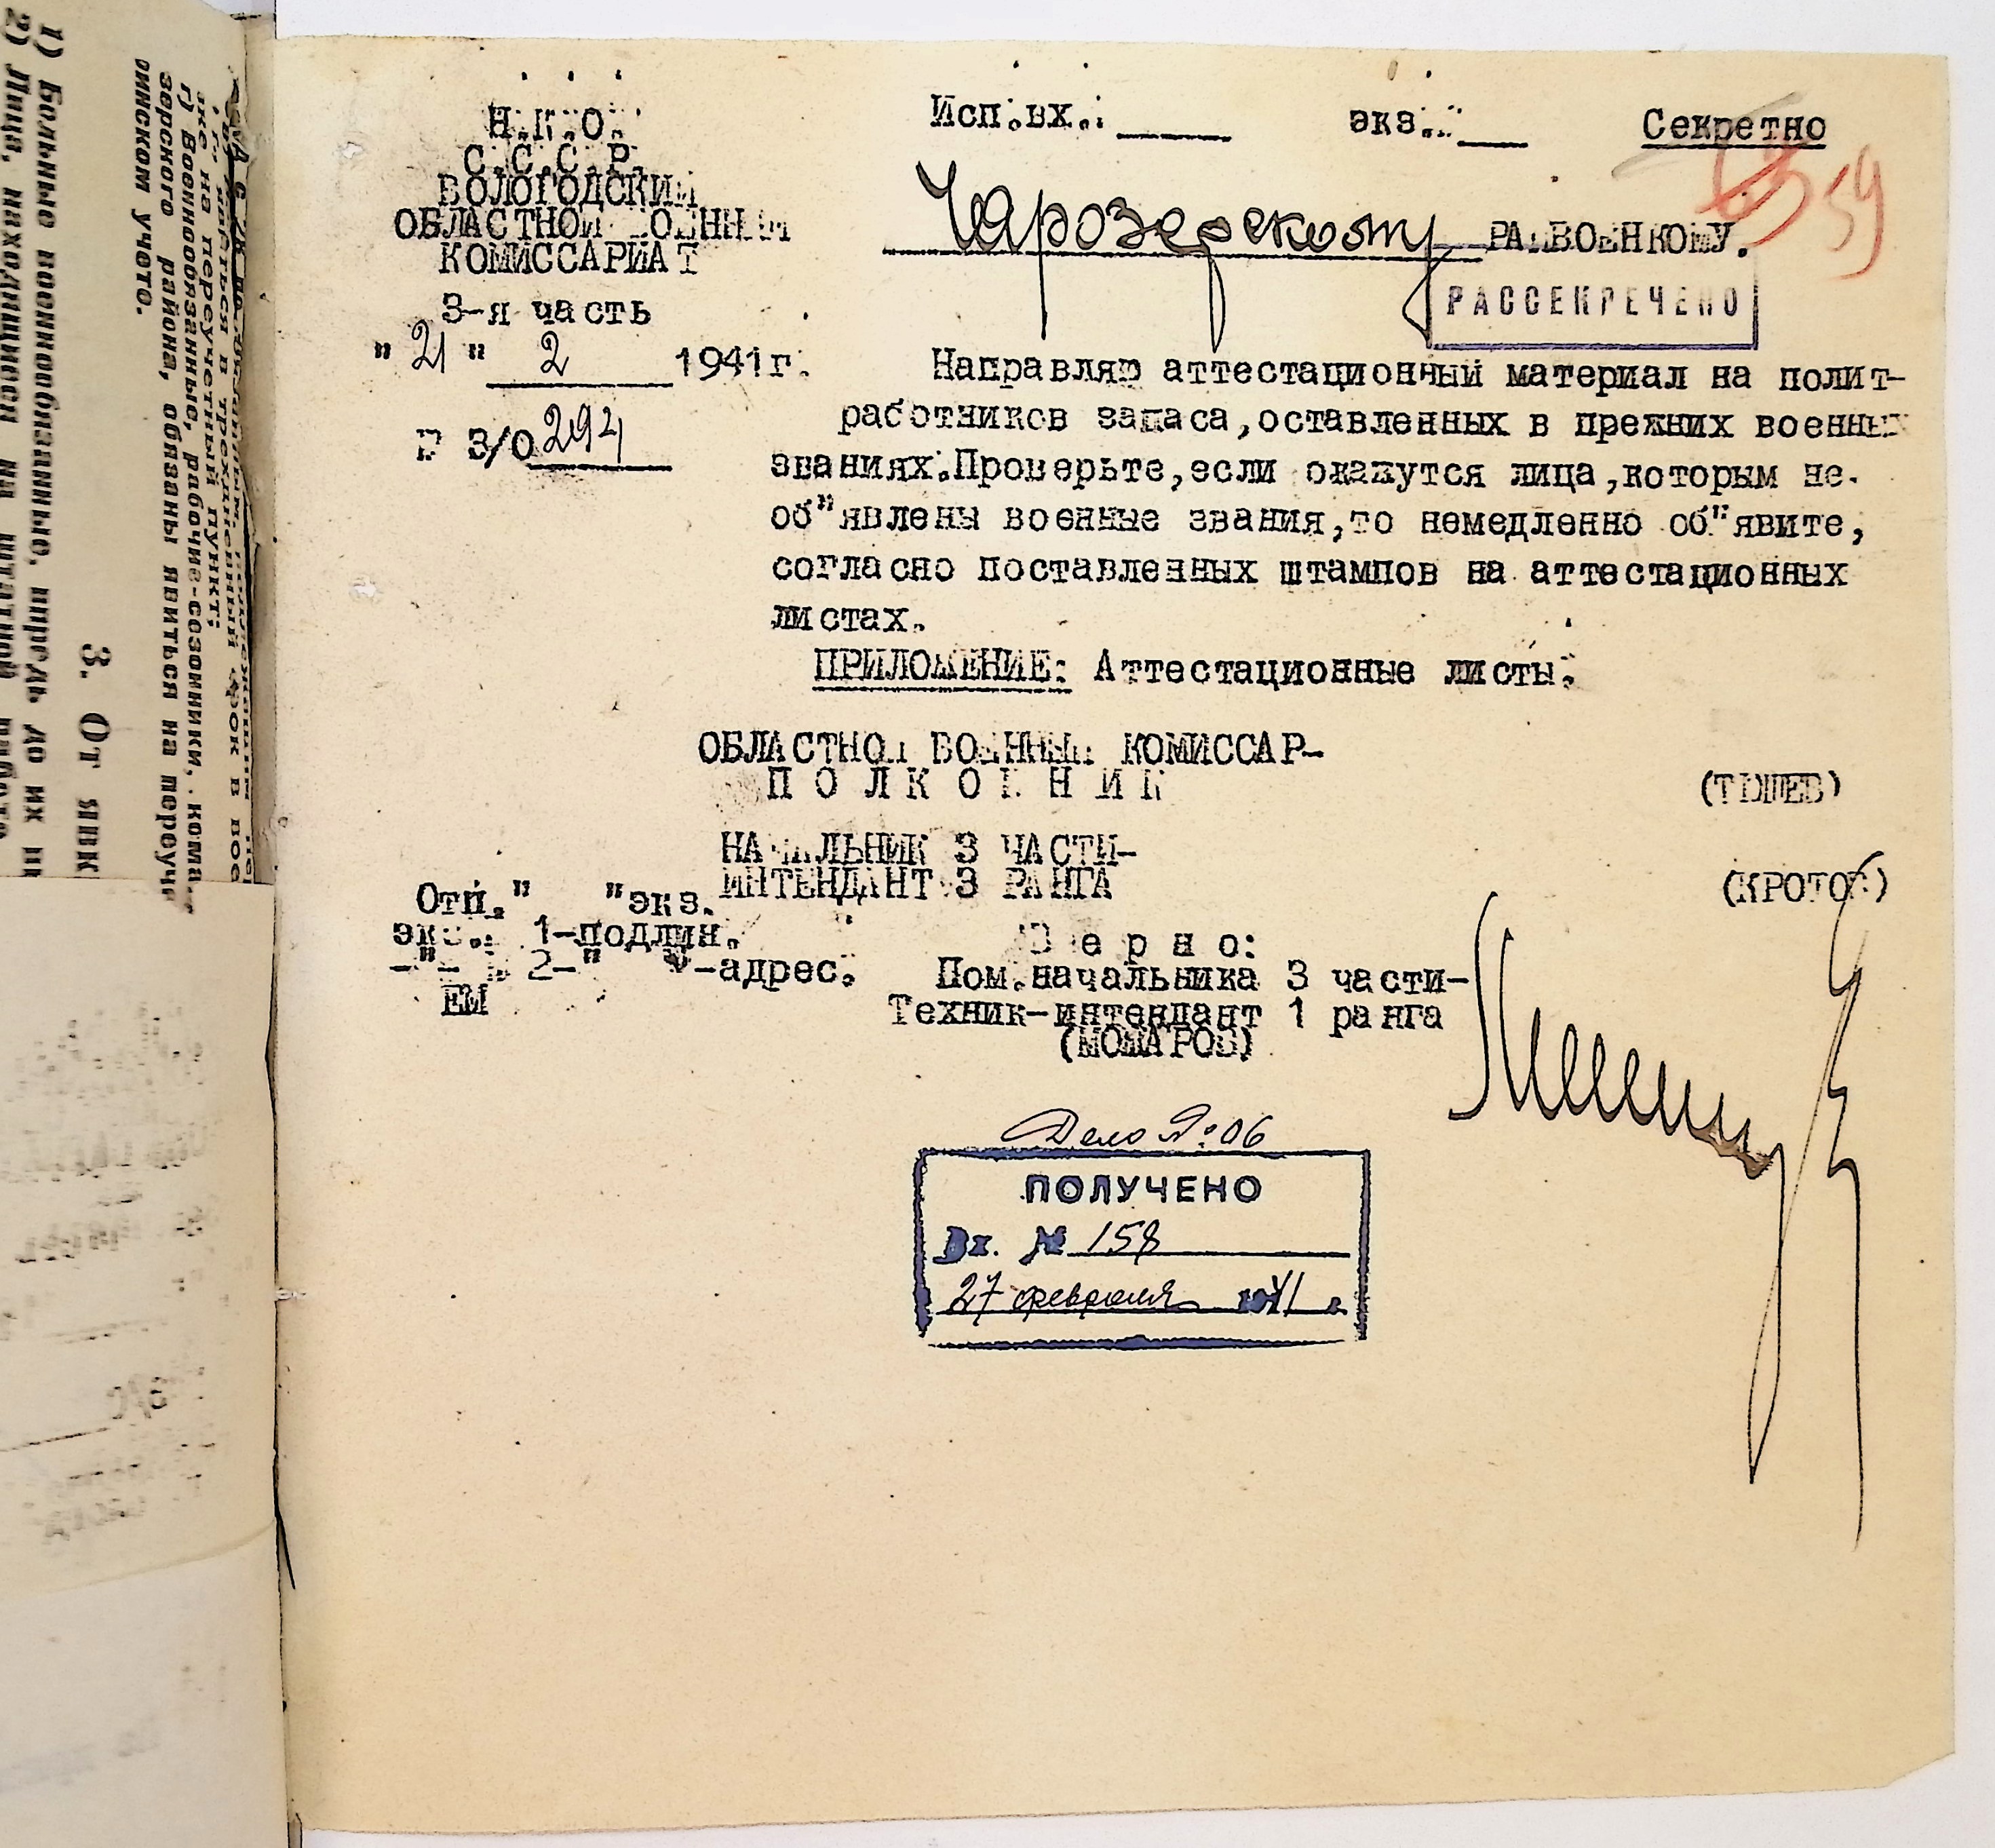 Н.К.О.
С.С.С.Р.
ВОЛОГОДСКИЙ
ОБЛАСТНОЙ ВОЕННЫЙ
КОМИССАРИАТ
3-я часть
"21" 2 1941г.
3/0294
Исп.вх.: экз. Секретно
59
Чарозерскому РАЙВОЕНКОМУ.
РАССЕКРЕЧЕНО
Направляю аттестационный материал на полит-
работников запаса,оставленных в прежних военных
званиях.Проверьте,если окажутся лица,которым не
об"явлены военные звания,то немедленно об"явите,
согласно поставленных штампов на аттестационных
листах.
ПРИЛОЖЕНИЕ: Аттестационные листы.
ОБЛАСТНОЙ ВОЕННЫЙ КОМИССАР-
П О Л К О В Н И К
НАЧАЛЬНИК 3 ЧАСТИ-
ИНТЕНДАНТ 3 РАНГА (КРОТОВ)
Отп." "экз.
экз. 1-подлин.
-"- 2-" -адрес.
ЕМ
В е р н о:
Пом.начальника 3 части-
Техник-интендант 1 ранга
Дело №:06
ПОЛУЧЕНО
Вх. № 158
27 февраля 1941 г.
зерского района, обязаны явиться на
воинском учете.
3. От явк
1) Больные военнообязанные, впредь до их
2) Лица, находящиеся на штатной работе